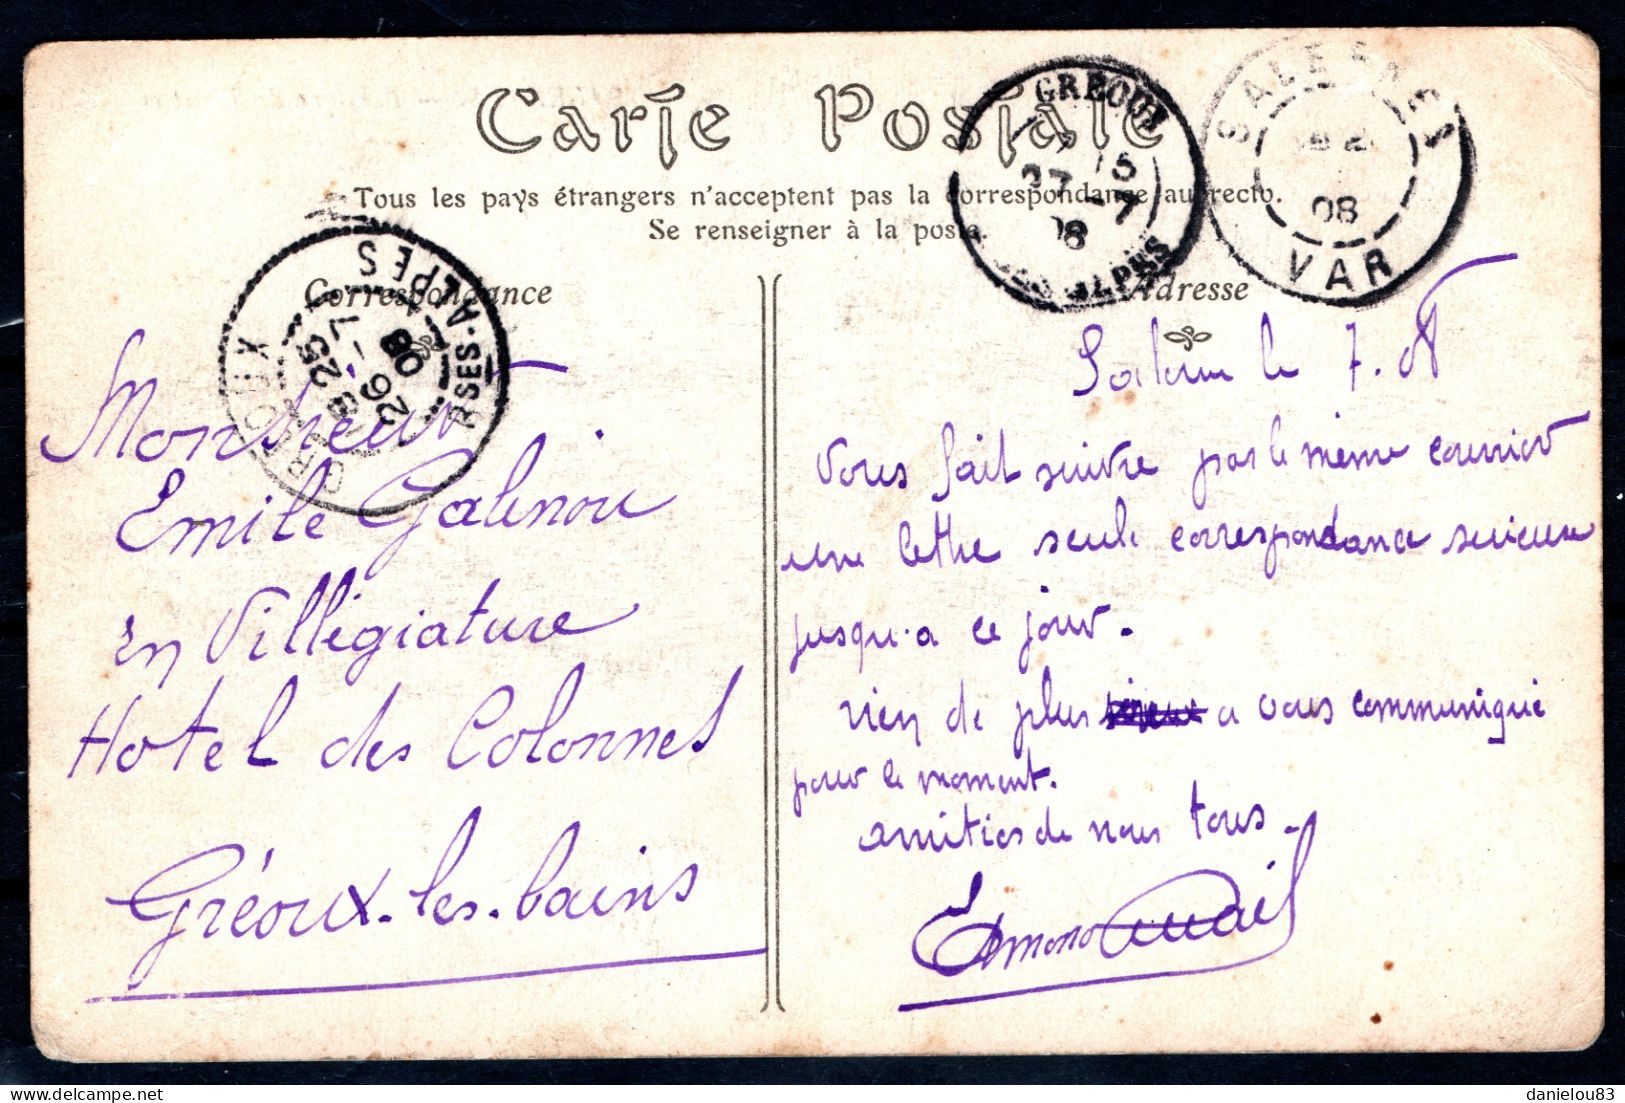 Carte Postale
Tous les pays étrangers n'acceptent pas la correspondance au recto.
Se renseigner à la poste.
Correspondance
Adresse
GRÉOUX
BASSES-ALPES
8 25
26 - 7
08
GREOUX
27 - 7
08
ALPES
SALERNES
08
VAR
Monsieur
Emile Galinou
en Villégiature
Hotel des Colonnes
Gréoux-les-bains
le 7.
Vous fait suivre par le même courrier
une lettre seule correspondance
jusqu'a ce jour.
rien de plus a vous communiqué
pour le moment.
amitiés de nous tous.
Edmond
danielou83